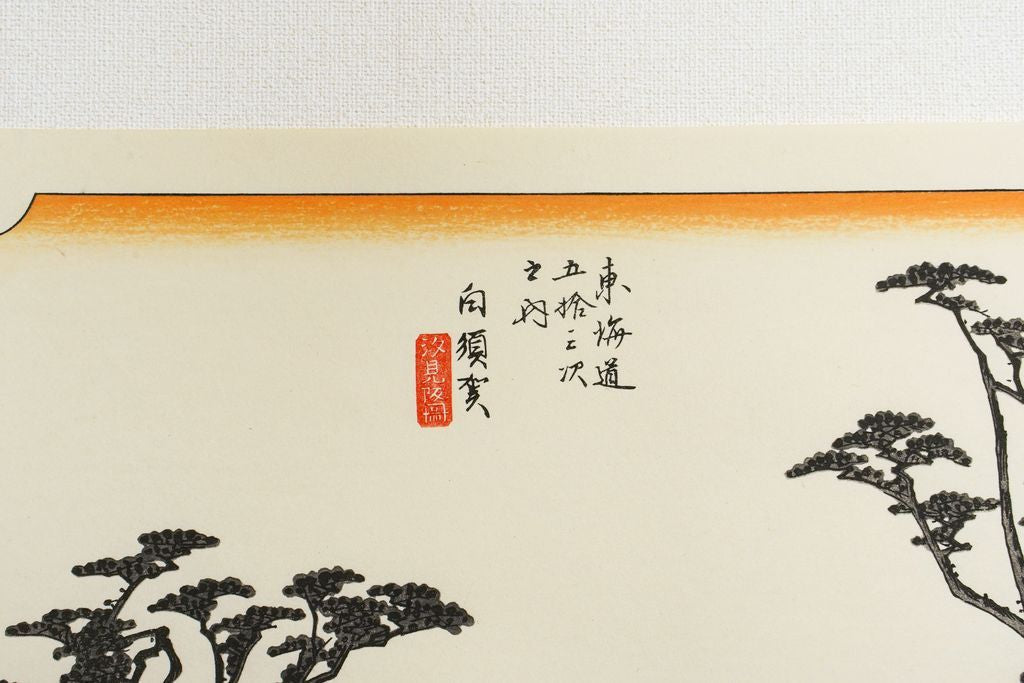 東海道
五拾三次
之内
白須賀
汐見阪図